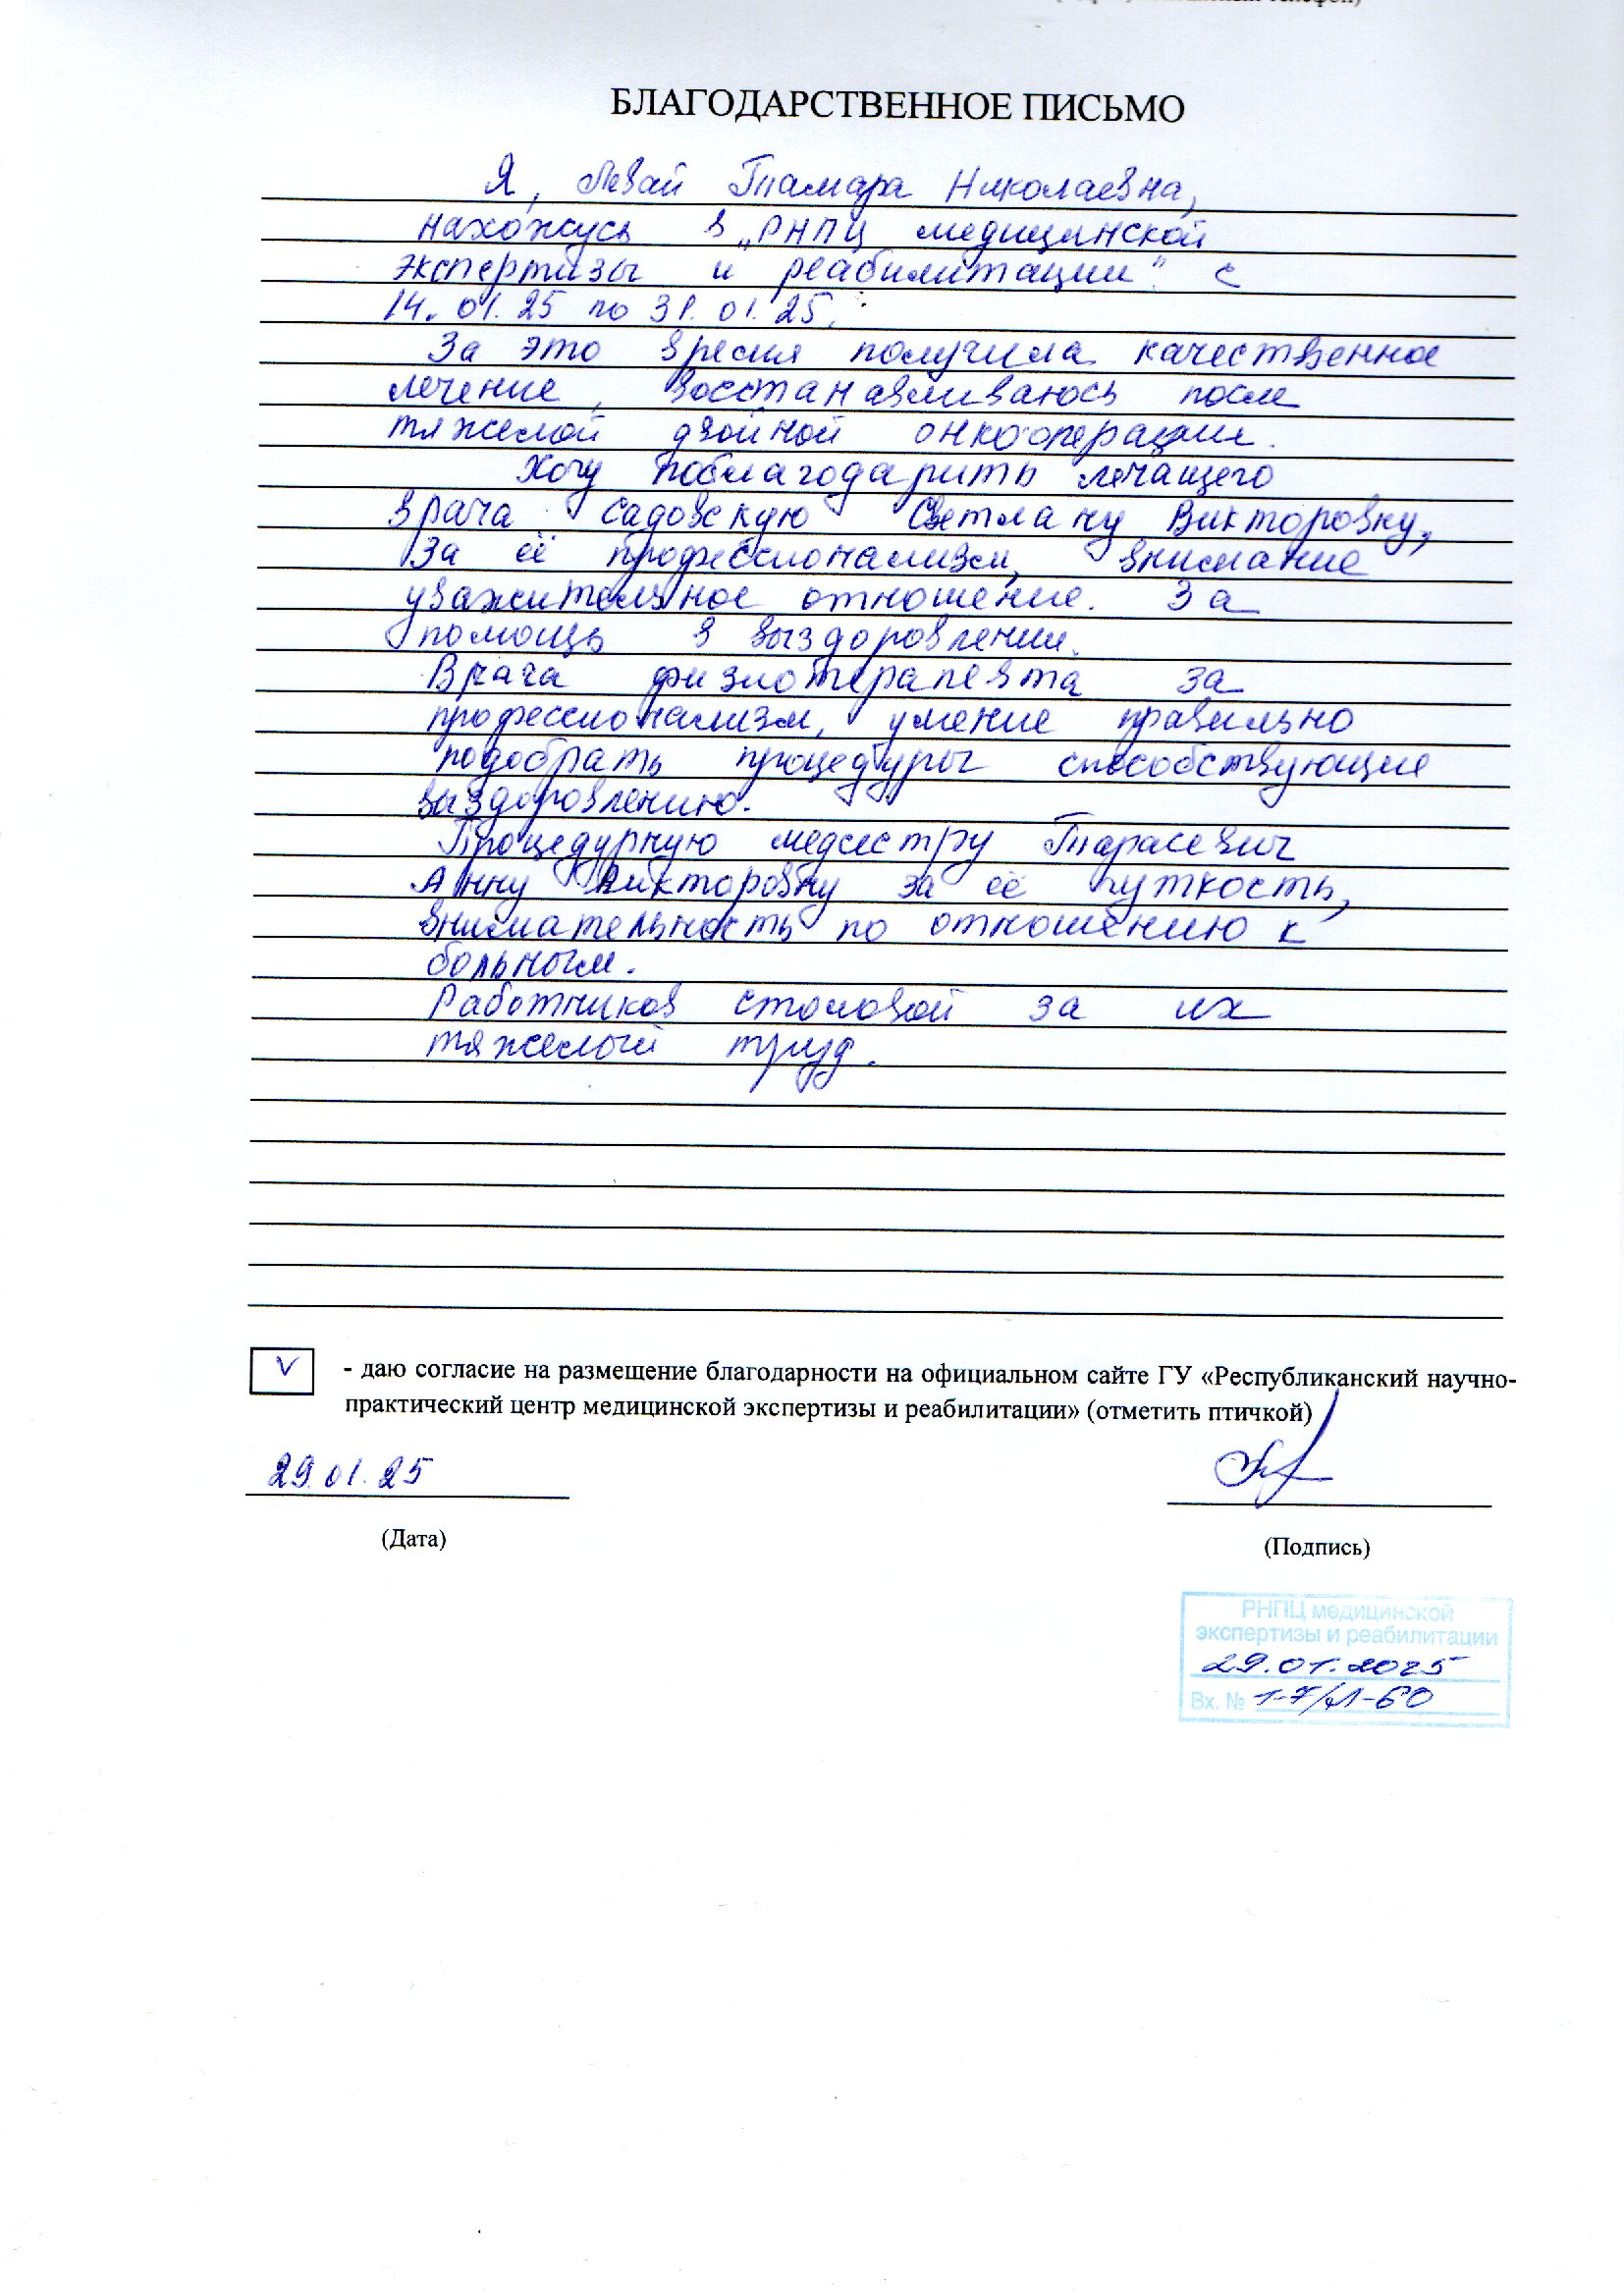 БЛАГОДАРСТВЕННОЕ ПИСЬМО
Я, Левай Тамара Николаевна,
нахожусь в „РНПЦ медицинской
экспертизы и реабилитации" с
14. 01. 25 по 31. 01. 25.
За это время получила качественное
лечение, восстанавливаюсь после
тяжелой двойной онкооперации.
Хочу поблагодарить лечащего
врача Садовскую Светлану Викторовну,
За её профессионализм, внимание
уважительное отношение. За
помощь в выздоровлении.
Врача физиотерапевта за
профессионализм, умение правильно
подобрать процедуры способствующие
выздоровлению.
Процедурную медсестру Тарасевич
Анну Викторовну за её чуткость,
внимательность по отношению к
больным.
Работников столовой за их
тяжелый труд.
V - даю согласие на размещение благодарности на официальном сайте ГУ «Республиканский научно-
практический центр медицинской экспертизы и реабилитации» (отметить птичкой)
29.01.25
(Дата)
(Подпись)
РНПЦ медицинской
экспертизы и реабилитации
29.01.2025
Вх. № 1-7/Л-60